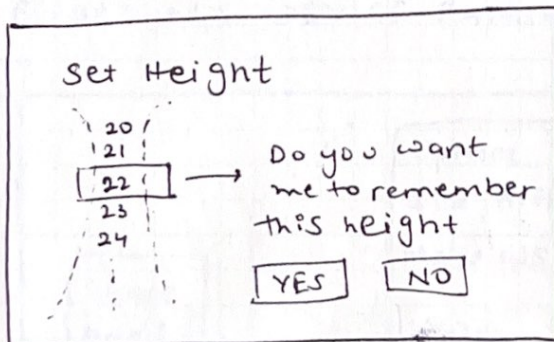 Set Height
20
21
22
23
24
Do you want
me to remember
this height
YES
NO